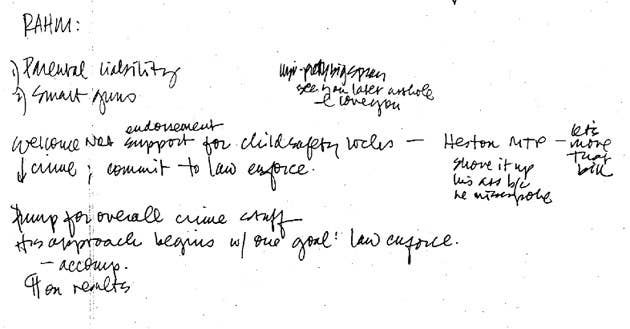 RAHM:
1) Parental liability
2) Smart guns
see you later asshole
I love you
endorsement
Welcome NRA support for child safety locks — Heston MTP — let's
move
that
bill
↓ crime; commit to law enforce.
shove it up
his ass b/c
he misspoke
Pump for overall crime stuff
His approach begins w/ one goal: law enforce.
— accomp.
¶ on results